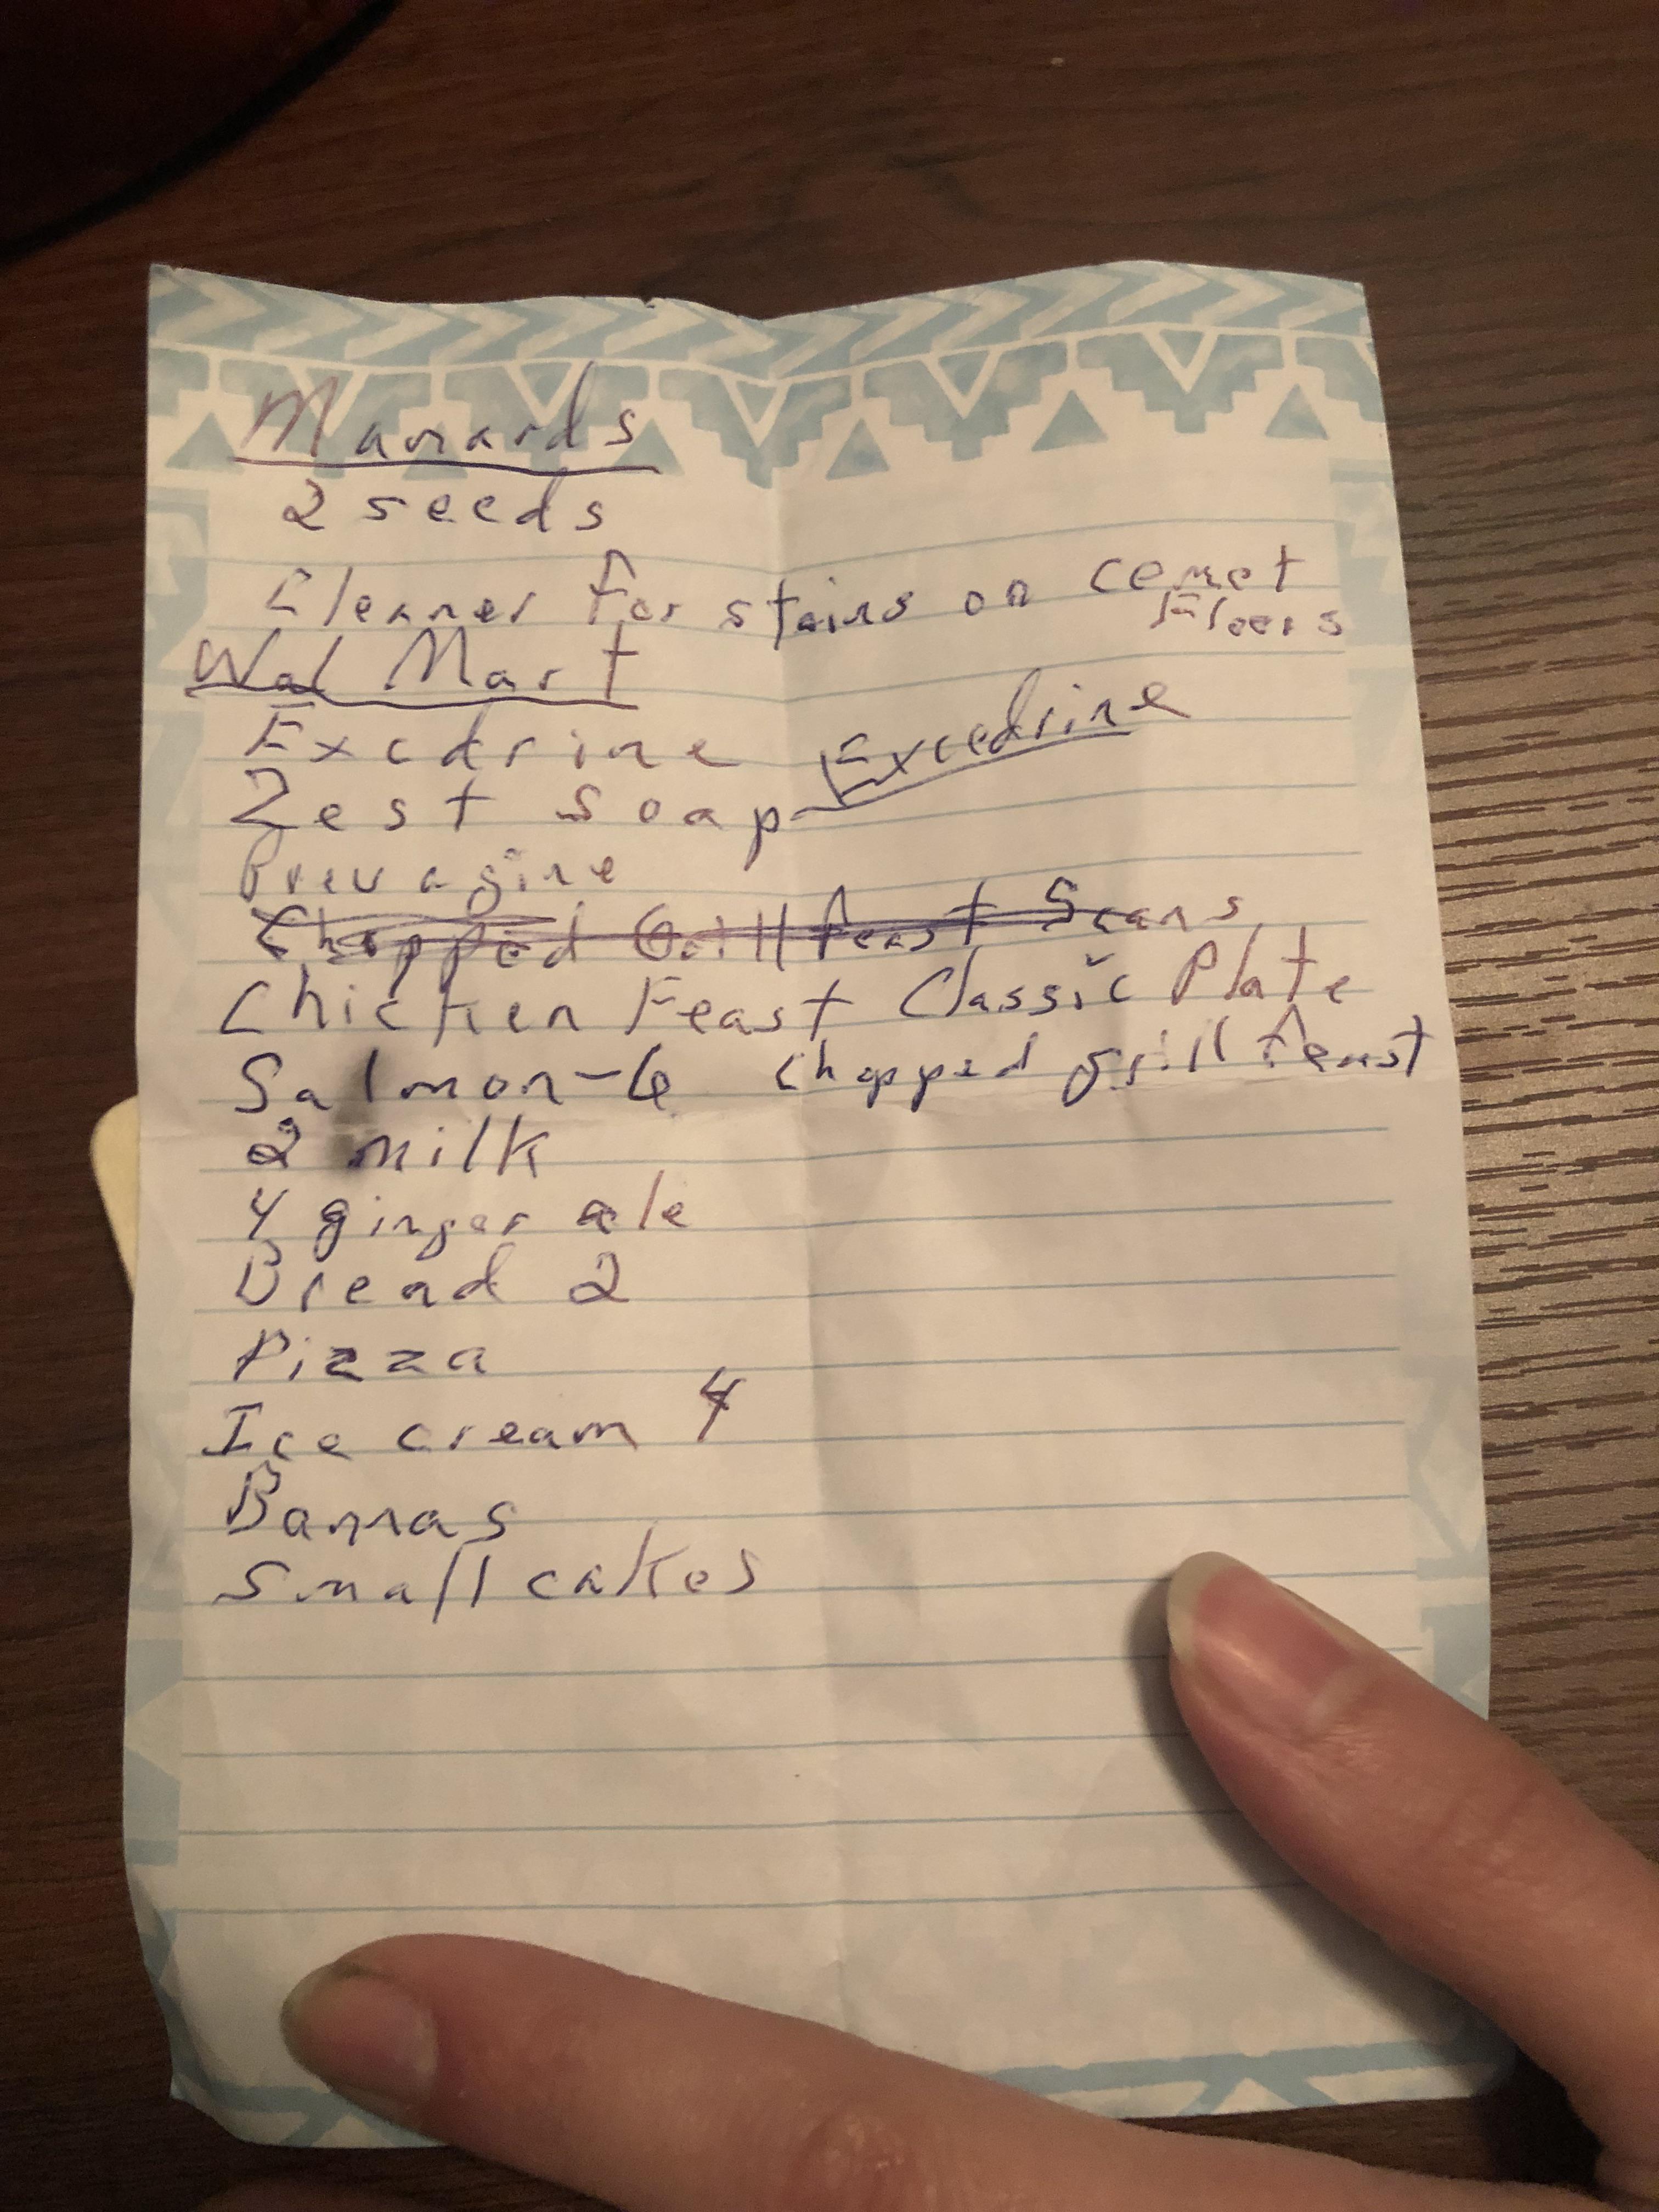 Manards
2 seeds
Cleaner for stains on cemet
Floors
Wal Mart
Excdrine
Excedrine
Zest Soap
Prevagine
Chopped Grill feast 5 cans
Chicken Feast Classic Plate
Salmon-6 chopped grill feast
2 milk
4 ginger ale
Bread 2
Pizza
Ice cream 4
Bannas
Small cakes